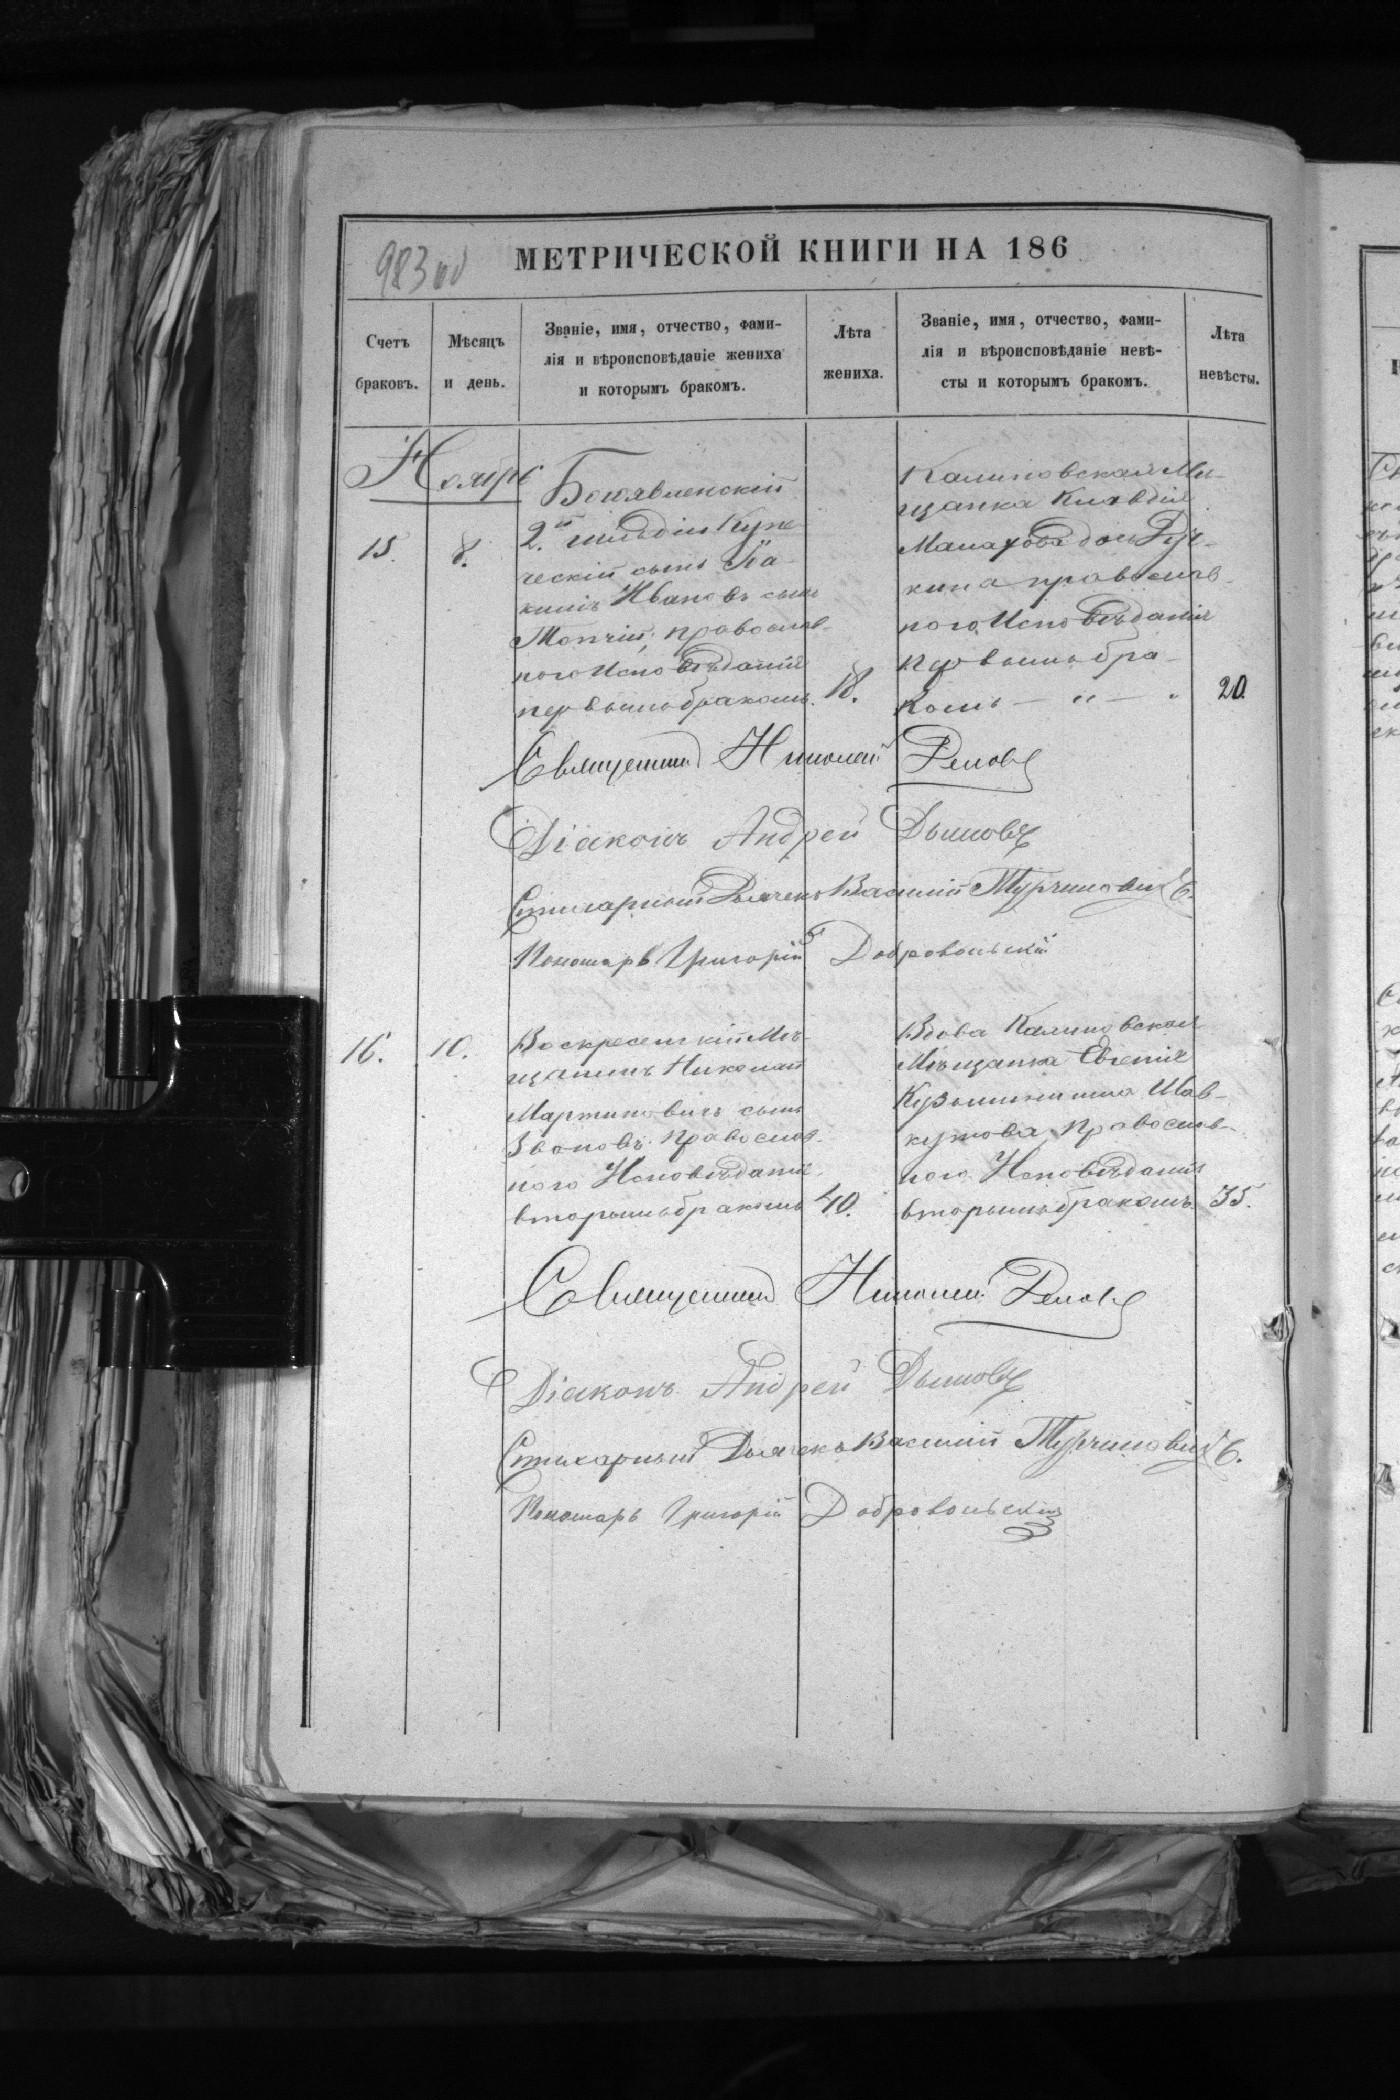 983 об
МЕТРИЧЕСКОЙ КНИГИ НА 186
Счетъ браковъ.
Мѣсяцъ и день.
Званіе, имя, отчество, фами-
лія и вѣроисповѣданіе жениха
и которымъ бракомъ.
Лѣта жениха.
Званіе, имя, отчество, фами-
лія и вѣроисповѣданіе невѣ-
сты и которымъ бракомъ.
Лѣта невѣсты.
Ноябрь
15.
8.
Богоявленскій
2.й гильдіи Купе-
ческій сынъ
Ивановъ сынъ
Топчій, православ-
ного Исповѣданія
первымъ бракомъ.
18.
Калиновская Мѣ-
щанка Клавдія
дочь Руч-
кина православ-
ного Исповѣданія
первымъ бра-
комъ — „ — „
20
Священникъ Николай
Діаконъ Андрей Дымовъ
Стихарный Дьячекъ Василій Турчиновичъ.
Пономарь Григорій Добровольскій
16.
10.
Воскресенскій Мѣ-
щанинъ Николай
Мартиновичъ сынъ
Звоновъ православ-
ного Исповѣданія
вторымъ бракомъ
40.
Вдова Калиновская
Мѣщанка Евгенія
Кузьминишна Шав-
кунова православ-
ного Исповѣданія
вторымъ бракомъ
35.
Священникъ Николай
Діаконъ Андрей Дымовъ
Стихарный Дьячекъ Василій Турчиновичъ.
Пономарь Григорій Добровольскій